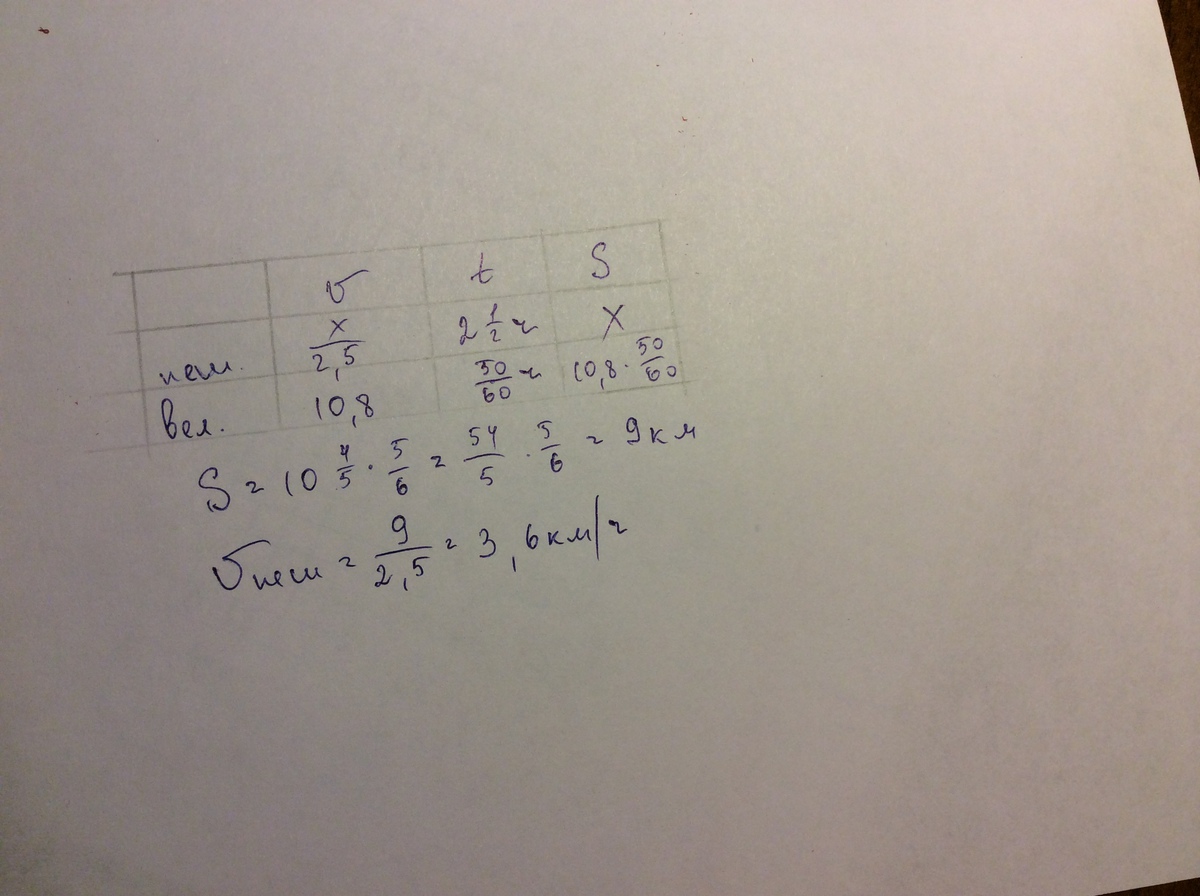 v t S
пеш. x/2,5 2 1/2 ч X
вел. 10,8 50/60 ч 10,8 · 50/60
S = 10 4/5 · 5/6 = 54/5 · 5/6 = 9 км
vпеш = 9/2,5 = 3,6 км/ч